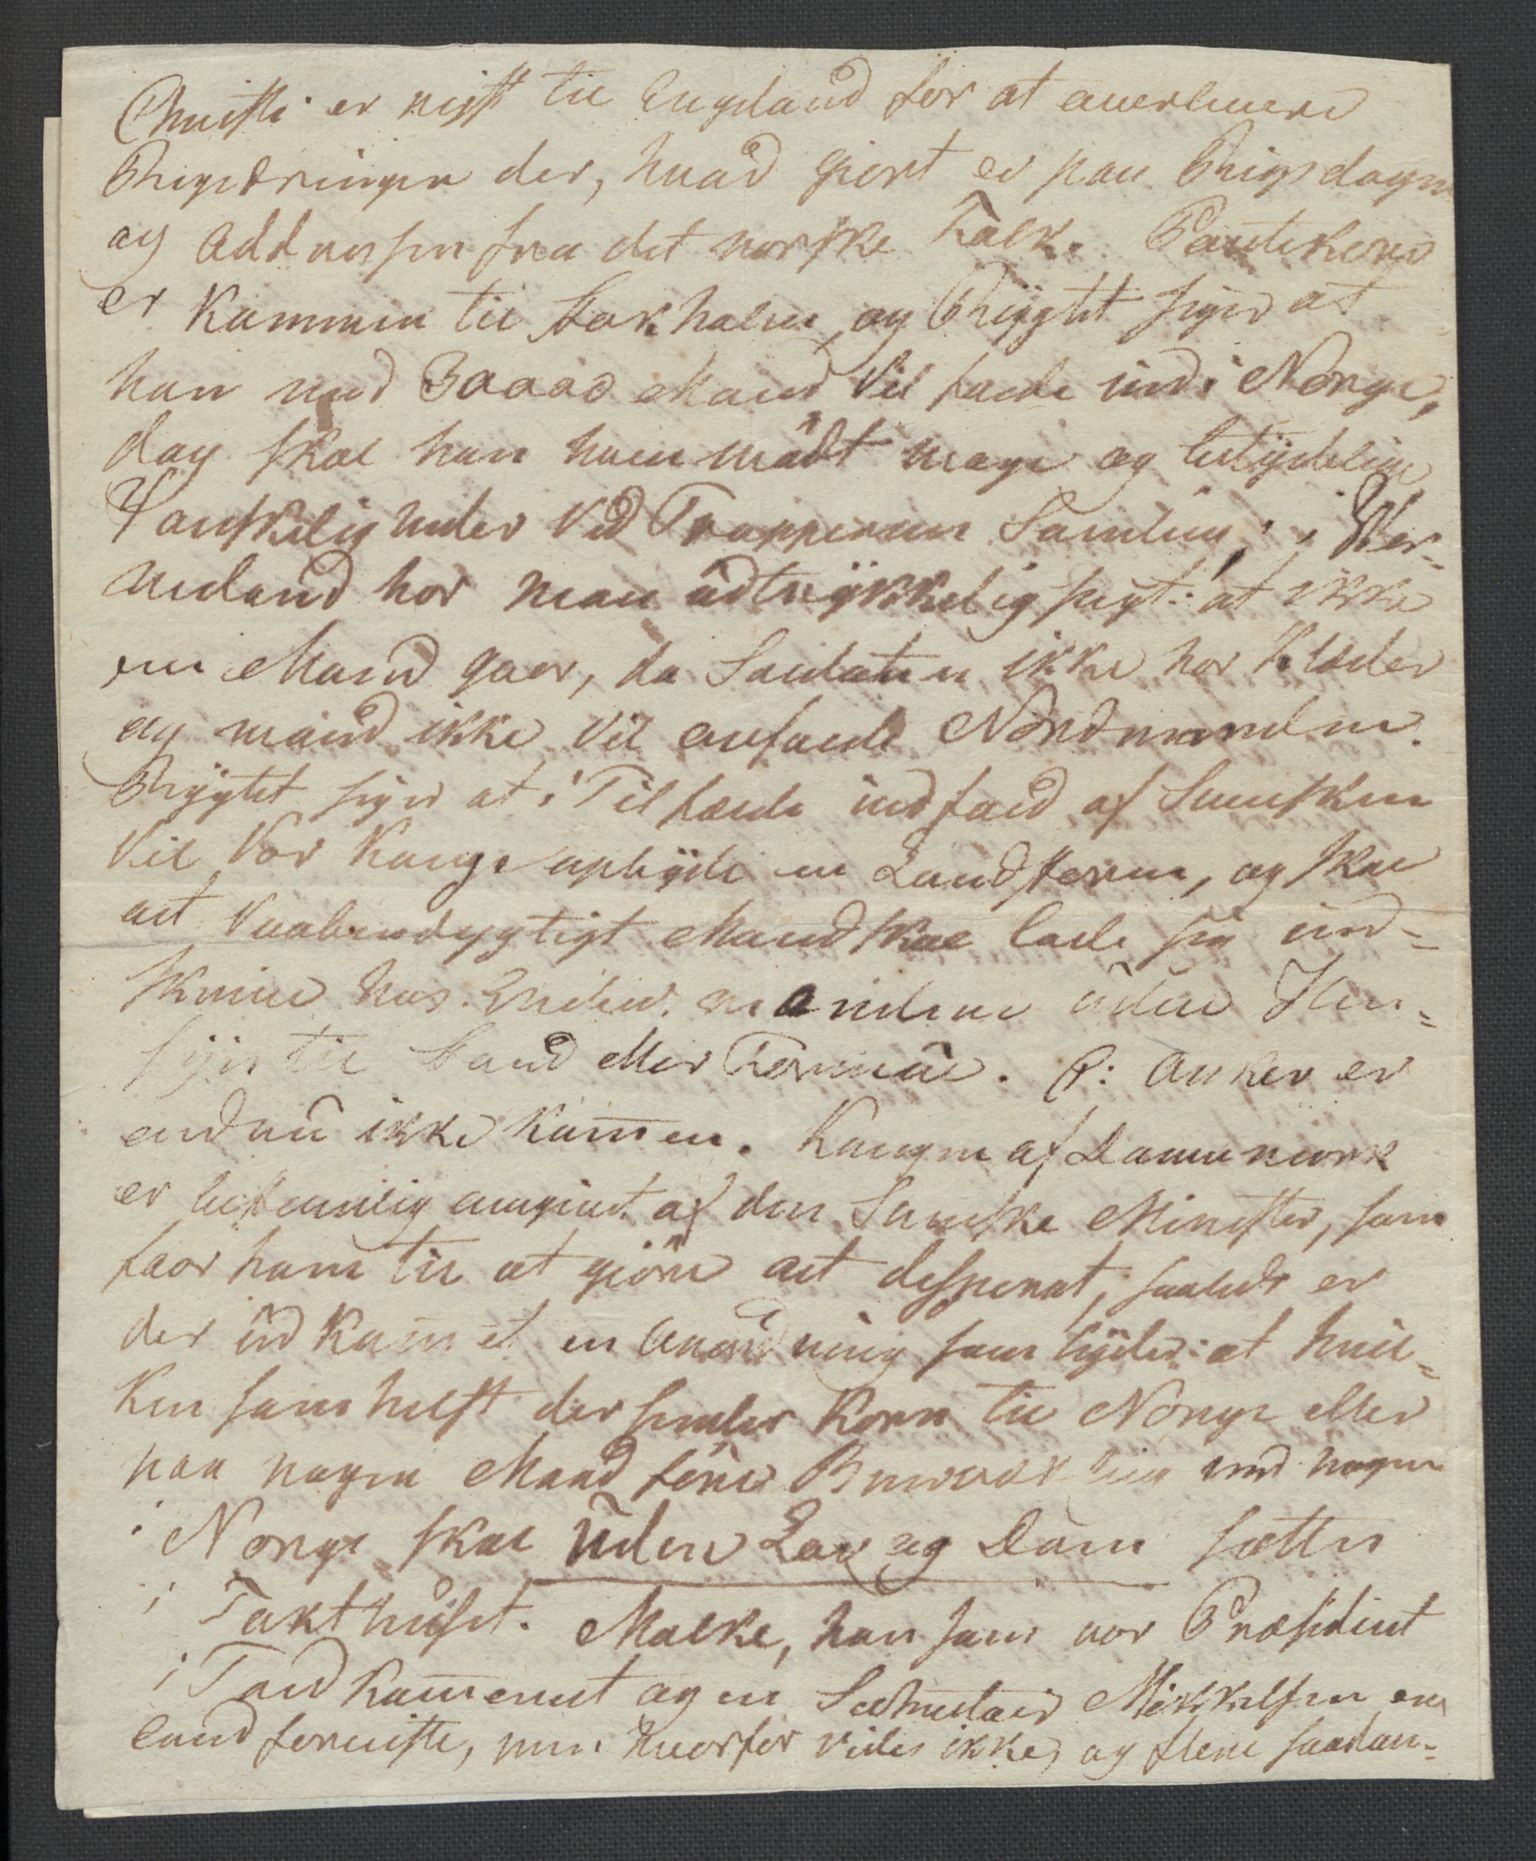 Christi er rejst til Engeland for at anerkmere
Rhegieringen der, hvad giort er paa Rhigsdagen
og Addressen fra det norske Folk. Pontekorvo
er kommen til Stokholm, og Rhÿgtet siger at
han med 30000 Mand Vil falde ind i Norge,
dog skal han have mödt mange og betÿdelige
Vanskeligheder Ved Troppernes Samling; i Wer-
meland har man udtrÿkkelig sagt: at ikke
en Mand gaar, da Soldaten ikke har Klæder
og mand ikke Vil anfalde Nordmanden.
Rhÿgtet siger at i Tilfælde indfald af Svensken
Vil Vor Konge opbÿde en Landstorm, og skal
alt Vaabendygtigt Mandskab lade sig ind-
skrive hos Lieder mændene uden Hen-
sÿn til Stand eller Formue. P: Anker er
endnu ikke kom̄en. Kongen af Danemark
er bestemmlig omgivet af den Svenske Minister, som
faar ham til at giöre alt desperat, saaledes er
der udkom̄et en Anordning som lÿder: at hvil-
ken somhelst der sender Korn til Norge eller
paa nogen Maade förer Brevvexling med nogen
i Norge skal uden Lov og Dom sættes
i Tukthuset. Malke, han som var Præsident
i Told Kam̄eret og en Secretair Mikkelsen ere
landforviste, men hvorfor vides ikke, og flere saadan-